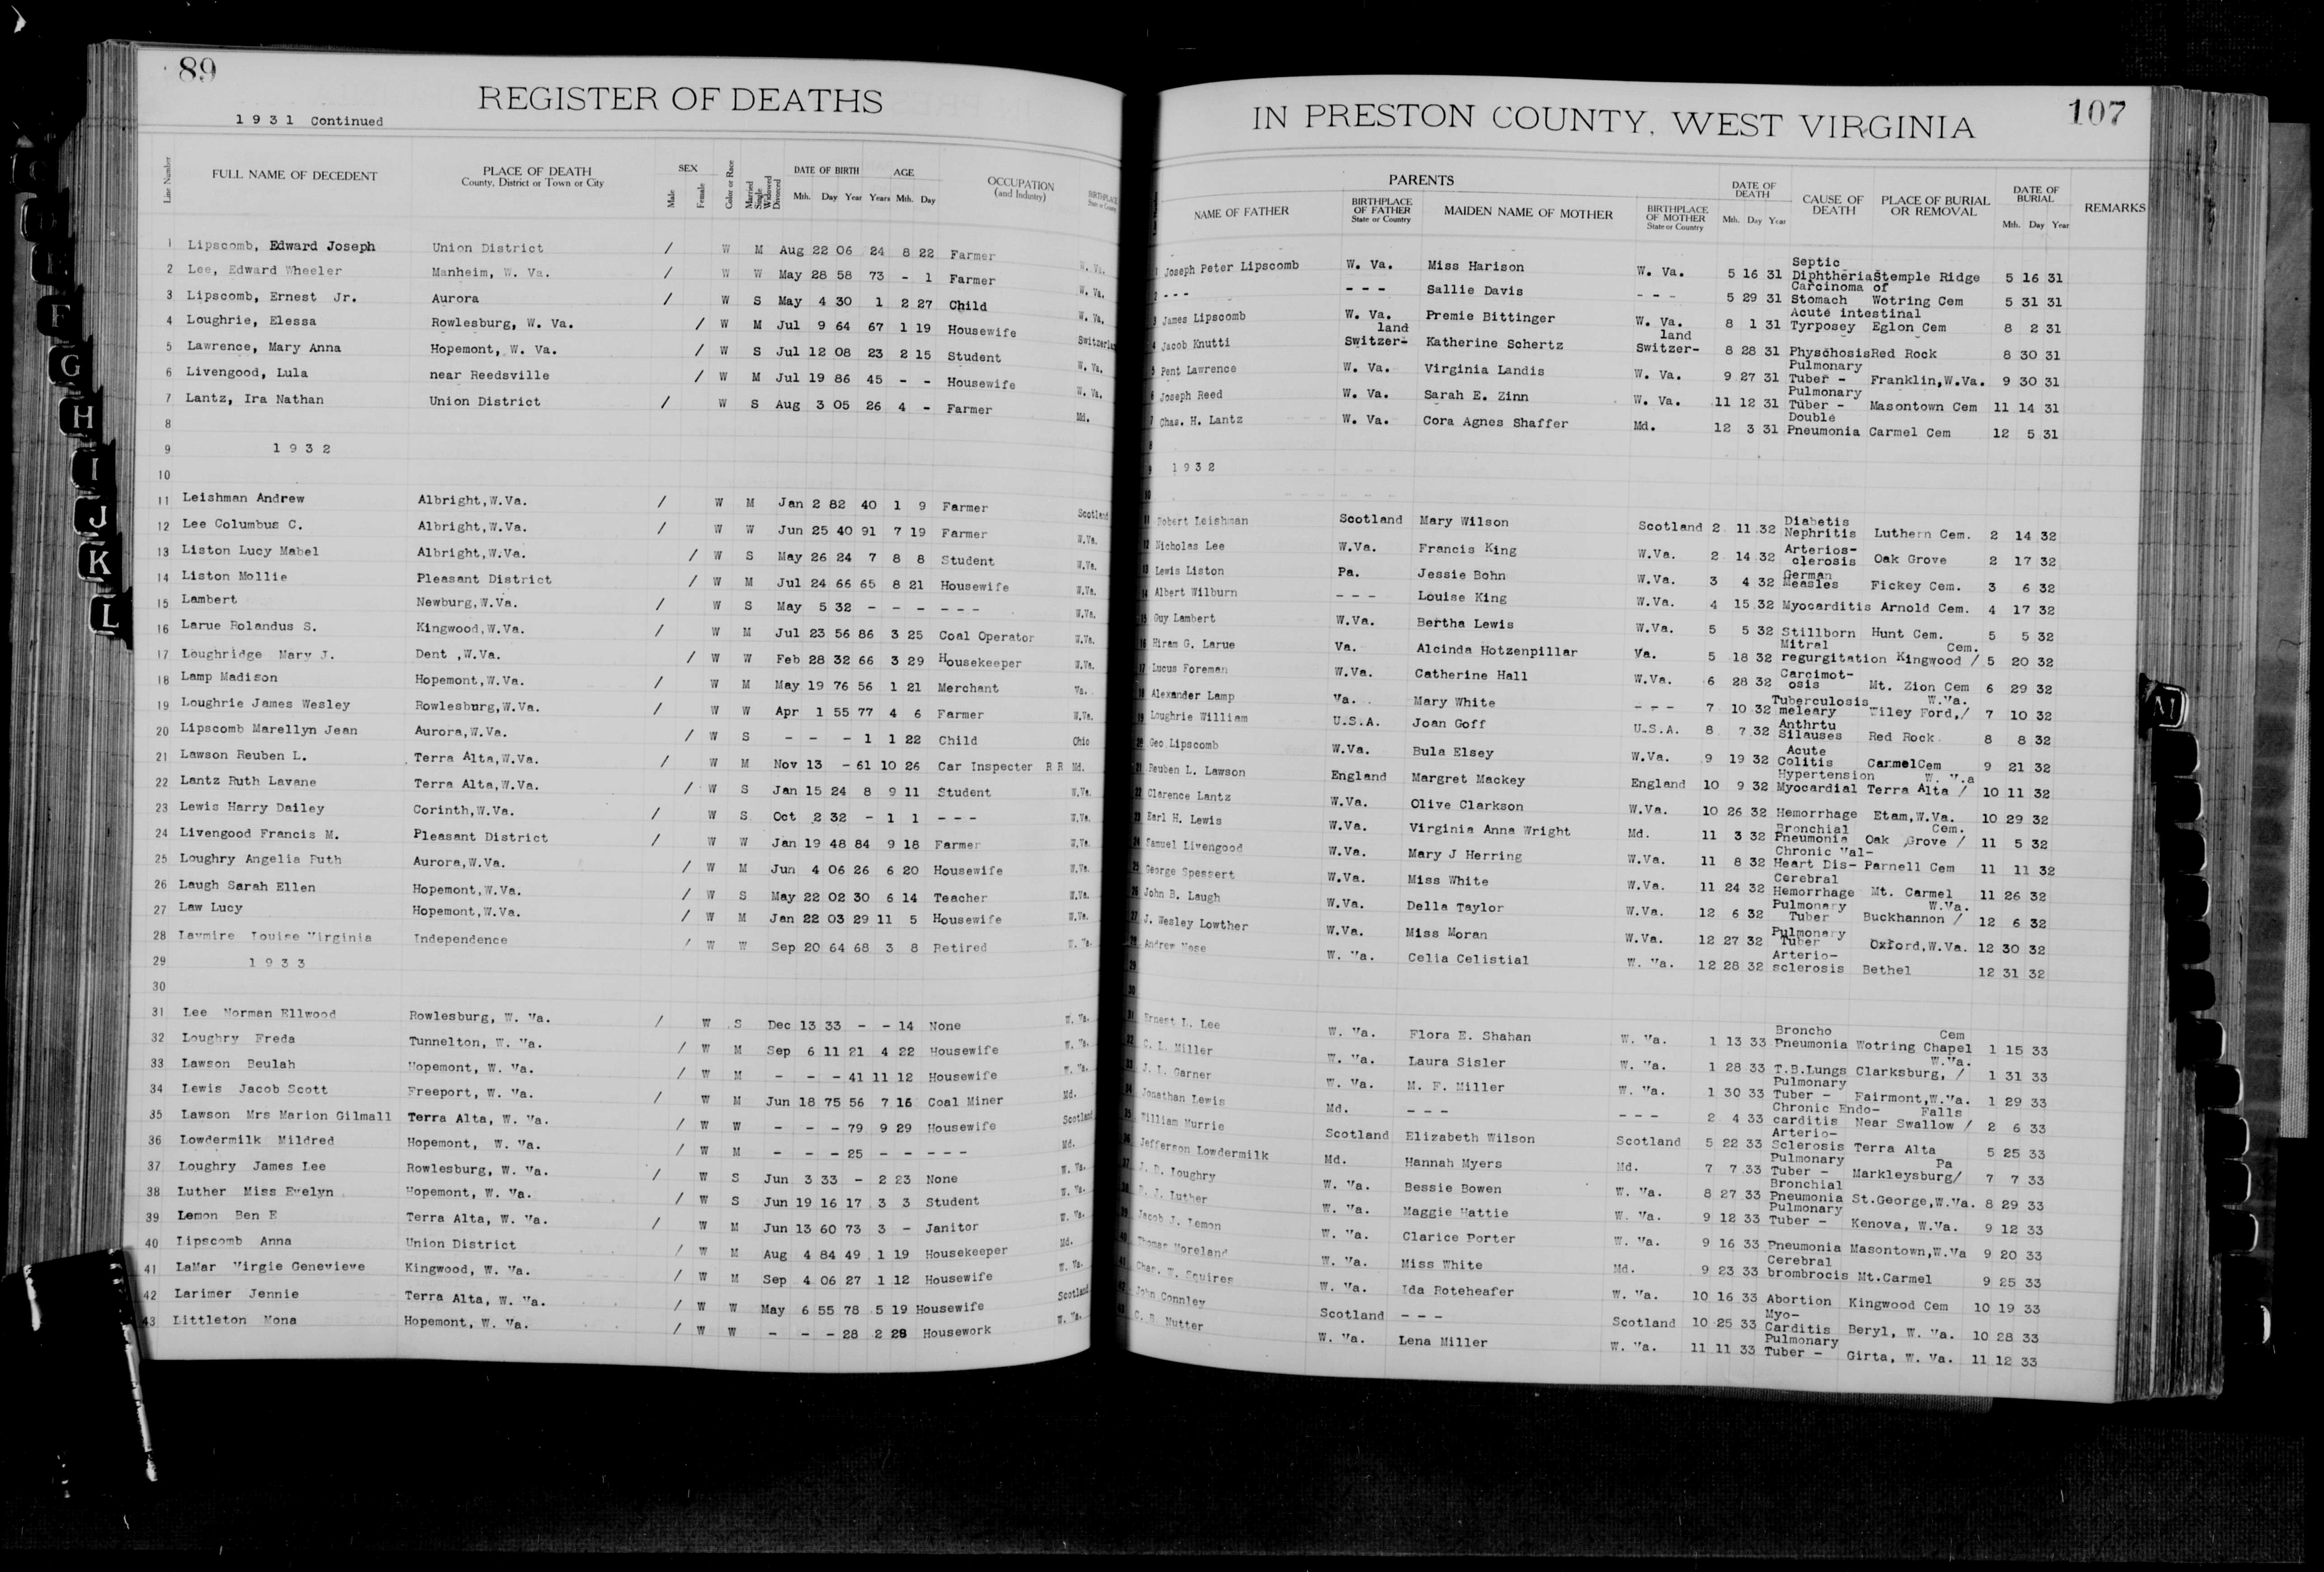 89
REGISTER OF DEATHS
1 9 3 1 Continued
Line Number
FULL NAME OF DECEDENT
PLACE OF DEATH
County, District or Town or City
SEX
Male
Female
Color or Race
Married Single Widowed Divorced
DATE OF BIRTH
Mth. Day Year
AGE
Years Mth. Day
OCCUPATION
(and Industry)
BIRTHPLACE
State or Country
1 Lipscomb, Edward Joseph Union District / W M Aug 22 06 24 8 22 Farmer W. Va.
2 Lee, Edward Wheeler Manheim, W. Va. / W W May 28 58 73 - 1 Farmer W. Va.
3 Lipscomb, Ernest Jr. Aurora / W S May 4 30 1 2 27 Child W. Va.
4 Loughrie, Elessa Rowlesburg, W. Va. / W M Jul 9 64 67 1 19 Housewife Switzerlan
5 Lawrence, Mary Anna Hopemont, W. Va. / W S Jul 12 08 23 2 15 Student W. Va.
6 Livengood, Lula near Reedsville / W M Jul 19 86 45 - - Housewife W. Va.
7 Lantz, Ira Nathan Union District / W S Aug 3 05 26 4 - Farmer Md.
8
9 1 9 3 2
10
11 Leishman Andrew Albright,W.Va. / W M Jan 2 82 40 1 9 Farmer Scotland
12 Lee Columbus C. Albright,W.Va. / W W Jun 25 40 91 7 19 Farmer W.Va.
13 Liston Lucy Mabel Albright,W.Va. / W S May 26 24 7 8 8 Student W.Va.
14 Liston Mollie Pleasant District / W M Jul 24 66 65 8 21 Housewife W.Va.
15 Lambert Newburg,W.Va. / W S May 5 32 - - - - - - W.Va.
16 Larue Rolandus S. Kingwood,W.Va. / W M Jul 23 56 86 3 25 Coal Operator W.Va.
17 Loughridge Mary J. Dent ,W.Va. / W W Feb 28 32 66 3 29 Housekeeper W.Va.
18 Lamp Madison Hopemont,W.Va. / W M May 19 76 56 1 21 Merchant Va.
19 Loughrie James Wesley Rowlesburg,W.Va. / W W Apr 1 55 77 4 6 Farmer W.Va.
20 Lipscomb Marellyn Jean Aurora,W.Va. / W S - - - 1 1 22 Child Ohio
21 Lawson Reuben L. Terra Alta,W.Va. / W M Nov 13 - 61 10 26 Car Inspecter R R Md.
22 Lantz Ruth Lavane Terra Alta,W.Va. / W S Jan 15 24 8 9 11 Student W.Va.
23 Lewis Harry Dailey Corinth,W.Va. / W S Oct 2 32 - 1 1 - - - W.Va.
24 Livengood Francis M. Pleasant District / W W Jan 19 48 84 9 18 Farmer W.Va.
25 Loughry Angelia Ruth Aurora,W.Va. / W M Jun 4 06 26 6 20 Housewife W.Va.
26 Laugh Sarah Ellen Hopemont,W.Va. / W S May 22 02 30 6 14 Teacher W.Va.
27 Law Lucy Hopemont,W.Va. / W M Jan 22 03 29 11 5 Housewife W.Va.
28 Laymire Louise Virginia Independence / W W Sep 20 64 68 3 8 Retired W. Va.
29 1 9 3 3
30
31 Lee Norman Ellwood Rowlesburg, W. Va. / W S Dec 13 33 - - 14 None W. Va.
32 Loughry Freda Tunnelton, W. Va. / W M Sep 6 11 21 4 22 Housewife W. Va.
33 Lawson Beulah Hopemont, W. Va. / W M - - - 41 11 12 Housewife W. Va.
34 Lewis Jacob Scott Freeport, W. Va. / W M Jun 18 75 56 7 16 Coal Miner Md.
35 Lawson Mrs Marion Gilmall Terra Alta, W. Va. / W W - - - 79 9 29 Housewife Scotland
36 Lowdermilk Mildred Hopemont, W. Va. / W M - - - 25 - - - - - Md.
37 Loughry James Lee Rowlesburg, W. Va. / W S Jun 3 33 - 2 23 None W. Va.
38 Luther Miss Evelyn Hopemont, W. Va. / W S Jun 19 16 17 3 3 Student W. Va.
39 Lemon Ben F Terra Alta, W. Va. / W M Jun 13 60 73 3 - Janitor W. Va.
40 Lipscomb Anna Union District / W M Aug 4 84 49 1 19 Housekeeper Md.
41 LaMar Virgie Genevieve Kingwood, W. Va. / W M Sep 4 06 27 1 12 Housewife W. Va.
42 Larimer Jennie Terra Alta, W. Va. / W W May 6 55 78 5 19 Housewife Scotland
43 Littleton Mona Hopemont, W. Va. / W W - - - 28 2 28 Housework W. Va.
F
G
H
I
J
K
L
IN PRESTON COUNTY, WEST VIRGINIA
107
PARENTS
NAME OF FATHER
BIRTHPLACE OF FATHER
State or Country
MAIDEN NAME OF MOTHER
BIRTHPLACE OF MOTHER
State or Country
DATE OF DEATH
Mth. Day Year
CAUSE OF DEATH
PLACE OF BURIAL OR REMOVAL
DATE OF BURIAL
Mth. Day Year
REMARKS
1 Joseph Peter Lipscomb W. Va. Miss Harison W. Va. 5 16 31 Septic Diphtheria Stemple Ridge 5 16 31
2 - - - - - - Sallie Davis - - - 5 29 31 Carcinoma of Stomach Wotring Cem 5 31 31
3 James Lipscomb W. Va. Premie Bittinger W. Va. 8 1 31 Acute intestinal Tyrposey Eglon Cem 8 2 31
4 Jacob Knutti Switzer-land Katherine Schertz Switzer-land 8 28 31 Physchosis Red Rock 8 30 31
5 Pent Lawrence W. Va. Virginia Landis W. Va. 9 27 31 Pulmonary Tuber - Franklin,W.Va. 9 30 31
6 Joseph Reed W. Va. Sarah E. Zinn W. Va. 11 12 31 Pulmonary Tuber - Masontown Cem 11 14 31
7 Chas. H. Lantz W. Va. Cora Agnes Shaffer Md. 12 3 31 Double Pneumonia Carmel Cem 12 5 31
8
9 1 9 3 2
10
11 Robert Leishman Scotland Mary Wilson Scotland 2 11 32 Diabetis Nephritis Luthern Cem. 2 14 32
12 Nicholas Lee W.Va. Francis King W.Va. 2 14 32 Arterios-clerosis Oak Grove 2 17 32
13 Lewis Liston Pa. Jessie Bohn W.Va. 3 4 32 German Measles Fickey Cem. 3 6 32
14 Albert Wilburn - - - Louise King W.Va. 4 15 32 Myocarditis Arnold Cem. 4 17 32
15 Guy Lambert W.Va. Bertha Lewis W.Va. 5 5 32 Stillborn Hunt Cem. 5 5 32
16 Hiram G. Larue Va. Alcinda Hotzenpillar Va. 5 18 32 Mitral regurgitation Kingwood / Cem. 5 20 32
17 Lucus Foreman W.Va. Catherine Hall W.Va. 6 28 32 Carcimot-osis Mt. Zion Cem 6 29 32
18 Alexander Lamp Va. Mary White - - - 7 10 32 Tuberculosis meleary Wiley Ford,/ W.Va. 7 10 32
19 Loughrie William U.S.A. Joan Goff U.S.A. 8 7 32 Anthrtu Silauses Red Rock 8 8 32
20 Geo Lipscomb W.Va. Bula Elsey W.Va. 9 19 32 Acute Colitis CarmelCem 9 21 32
21 Reuben L. Lawson England Margret Mackey England 10 9 32 Hypertension Myocardial Terra Alta / W. V.a 10 11 32
22 Clarence Lantz W.Va. Olive Clarkson W.Va. 10 26 32 Hemorrhage Etam,W.Va. 10 29 32
23 Earl H. Lewis W.Va. Virginia Anna Wright Md. 11 3 32 Bronchial Pneumonia Oak Grove / Cem. 11 5 32
24 Samuel Livengood W.Va. Mary J Herring W.Va. 11 8 32 Chronic Val-Heart Dis- Parnell Cem 11 11 32
25 George Spessert W.Va. Miss White W.Va. 11 24 32 Cerebral Hemorrhage Mt. Carmel 11 26 32
26 John B. Laugh W.Va. Della Taylor W.Va. 12 6 32 Pulmonary Tuber Buckhannon / W.Va. 12 6 32
27 J. Wesley Lowther W.Va. Miss Moran W.Va. 12 27 32 Pulmonary Tuber Oxford,W.Va. 12 30 32
28 Andrew Mose W. Va. Celia Celistial W. Va. 12 28 32 Arterio-sclerosis Bethel 12 31 32
29
30
31 Ernest L. Lee W. Va. Flora E. Shahan W. Va. 1 13 33 Broncho Pneumonia Wotring Chapel Cem 1 15 33
32 C. L. Miller W. Va. Laura Sisler W. Va. 1 28 33 T.B.Lungs Clarksburg, / W.Va. 1 31 33
33 J. L. Garner W. Va. M. F. Miller W. Va. 1 30 33 Pulmonary Tuber - Fairmont,W.Va. 1 29 33
34 Jonathan Lewis Md. - - - - - - 2 4 33 Chronic Endo-carditis Near Swallow / Falls 2 6 33
35 William Murrie Scotland Elizabeth Wilson Scotland 5 22 33 Arterio-Sclerosis Terra Alta 5 25 33
36 Jefferson Lowdermilk Md. Hannah Myers Md. 7 7 33 Pulmonary Tuber - Markleysburg/ Pa 7 7 33
37 J. D. Loughry W. Va. Bessie Bowen W. Va. 8 27 33 Bronchial Pneumonia St.George,W.Va. 8 29 33
38 Luther W. Va. Maggie Hattie W. Va. 9 12 33 Pulmonary Tuber - Kenova, W.Va. 9 12 33
39 Jacob J. Lemon W. Va. Clarice Porter W. Va. 9 16 33 Pneumonia Masontown,W.Va 9 20 33
40 Thomas Moreland W. Va. Miss White Md. 9 23 33 Cerebral brombrocis Mt.Carmel 9 25 33
41 Chas. W. Squires W. Va. Ida Roteheafer W. Va. 10 16 33 Abortion Kingwood Cem 10 19 33
42 John Connley Scotland - - - Scotland 10 25 33 Myo-Carditis Beryl, W. Va. 10 28 33
43 C. B Nutter W. Va. Lena Miller W. Va. 11 11 33 Pulmonary Tuber - Girta, W. Va. 11 12 33
M